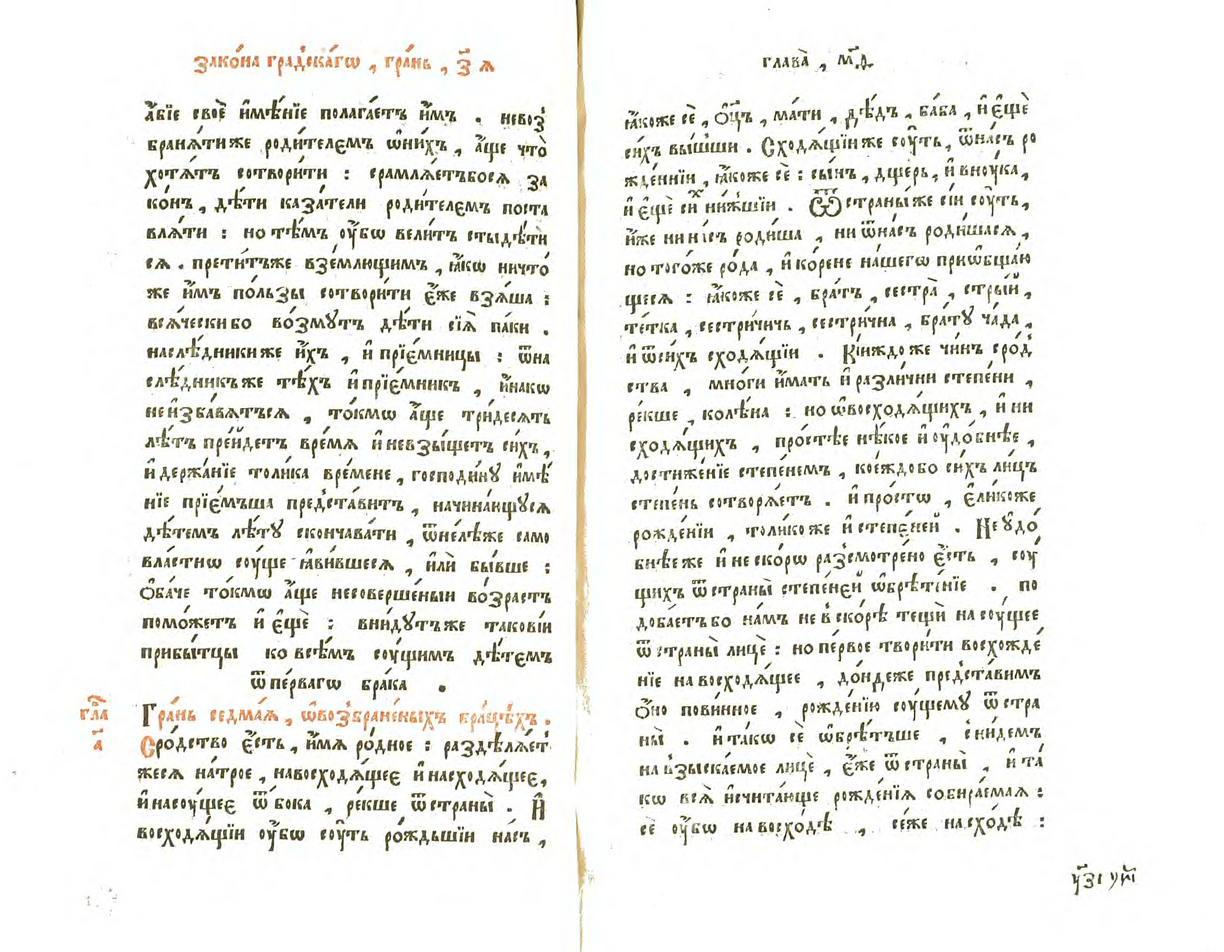 Зако́на градска́гѡ , гра́нь , з҃ ꙗ
а҆́бїе своѐ и҆мѣ́нїе полага́етъ и҆̀мъ . невоз̾
браня́ти же роди́телемъ ѡ҆ни́хъ , а҆́ще что̀
хотѧ́тъ сотвори́ти : срамлѧ́етъбосѧ за
ко́нъ , дѣ́ти каза́тели роди́телемъ поста
влѧ́ти : но тѣ́мъ ᲂу҆́бѡ вели́тъ стыдѣ́ти
сѧ . прети́тъже взе́млющимъ , ꙗ҆́кѡ ничто́
же и҆̀мъ по́льзы сотвори́ти є҆́же взѧ́ша :
всѧ́чески бо во́змꙋтъ дѣ́ти сїѧ̀ па́ки .
наслѣ́дники же и҆́хъ , и҆ прїе́мницы : ѿ на
слѣ́дникъ же тѣ́хъ и҆ прїе́мникъ , и҆́накѡ
не и҆зба́вѧтъсѧ , то́кмѡ а҆́ще три́десѧть
лѣ́тъ пре́йдетъ вре́мѧ и҆ невзы́щетъ си́хъ ,
и҆ держа́нїе толи́ка вре́мене , господи́нꙋ и҆мѣ́
нїе прїе́мъша предста́витъ , начина́ющꙋсѧ
дѣ́темъ лѣ́тꙋ сконча́вати , ѿне́лѣже само
вла́стнѡ сꙋ́ще ꙗ҆ви́вшесѧ , и҆лѝ бы́вше :
Ѻ҆ба́че то́кмѡ а҆́ще несоверше́ныи во́зрастъ
помо́жетъ и҆ є҆щѐ : вни́дꙋтъже такові́и
прибы́тцы ко всѣ́мъ сꙋ́щимъ дѣ́темъ
ѿ пе́рвагѡ бра́ка .
гла́ а҃
Гра́нь седма́ѧ , ѡ҆ воз̾бране́ныхъ бра́цѣхъ .
Сро́дство є҆́сть , и҆́мѧ ро́дное : раздѣлѧ́ет̾
жесѧ на́трое , на восходѧ́щее и҆ на сходѧ́щее ,
и҆ на сꙋ́щее ѿ бо́ка , ре́кше ѿ страны̀ . И҆
восходѧ́щїи ᲂу҆́бѡ сꙋ́ть ро́ждьшїи на́съ ,
глава̀ , м҃д
ꙗ҆́коже сѐ , ѻ҆ц҃ъ , ма́ти , дѣ́дъ , ба́ба , и҆ є҆щѐ
си́хъ вы́шши . Сходѧ́щїи же сꙋ́ть , ѿ на́съ ро
жде́ннїи , ꙗ҆́коже сѐ : сы́нъ , дщерь , и҆ внꙋ́ка ,
и҆ є҆щѐ сиⷯ ни́жшїи . Ѿ страны́ же сі́и сꙋ́ть ,
и҆̀же ни на́съ роди́ша , ни ѿ на́съ роди́шасѧ ,
но тогѡ́же ро́да , и҆ ко́рене на́шегѡ прїѡбща́ю
щесѧ : ꙗ҆́коже сѐ , бра́тъ , сестра̀ , стры́й ,
те́тка , сестри́чичь , сестри́чна , бра́тꙋ ча́да ,
и҆ ѿ си́хъ сходѧ́щїи . Кі́иждо же чи́нъ сро́д
ства , мно́ги и҆́мать и҆ разли́чни степе́ни ,
ре́кше , колѣ́на : но ѡ҆ восходѧ́щихъ , и҆ ни
сходѧ́щихъ , про́стѣе нѣ́кое и҆ ᲂу҆до́бнѣе ,
достиже́нїе степе́немъ , кое́ждо бо си́хъ ли́цъ
степе́нь сотворѧ́етъ . и҆ про́стѡ , є҆ли́коже
рожде́нїи , толи́ко же и҆ степе́ней . Не ᲂу҆до́
бнѣе же и҆ не ско́рѡ раз̾смо́трено є҆́сть , сꙋ́
щихъ ѿ страны̀ степе́ней ѡ҆брѣ́тенїе . по
доба́етъ бо на́мъ не в̾ско́рѣ тещѝ на сꙋ́щее
ѿ страны̀ лицѐ : но пе́рвое твори́ти восхожде́
нїе на восходѧ́щее , до́ндеже предста́вимъ
Ѻ҆́но пови́нное , рожде́нїю сꙋ́щемꙋ ѿ стра
ны̀ . и҆ та́кѡ сѐ ѡ҆брѣ́тъше , сни́демъ
на взыска́емое лицѐ , є҆́же ѿ страны̀ , и҆ та́
кѡ всѧ̀ и҆счита́юще рожде́нїѧ собира́емаѧ :
сѐ ᲂу҆́бѡ на восхо́дѣ , се́же на схо́дѣ :